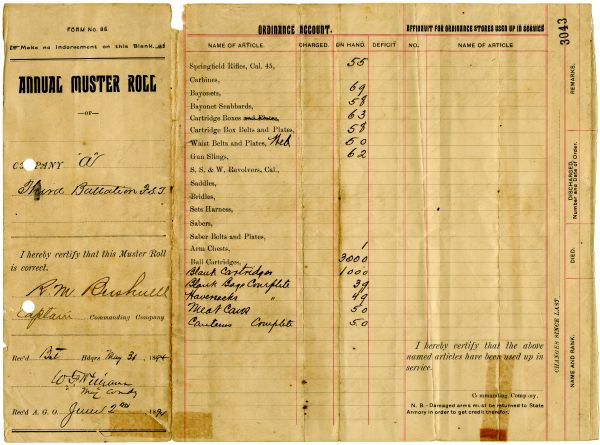 FORM No. 86.
Make no Indorsement on this Blank.
ANNUAL MUSTER ROLL
—OF—
COMPANY "A"
Third Battalion F.S.T
I hereby certify that this Muster Roll
is correct.
R. M. Bushnell
Captain Commanding Company.
Rec'd Bat Hdqrs May 31, 1894
Rec'd A. G. O. June 2nd 1894
ORDINANCE ACCOUNT.
NAME OF ARTICLE. CHARGED. ON HAND. DEFICIT
Springfield Rifles, Cal. 45, 55
Carbines,
Bayonets, 69
Bayonet Scabbards, 58
Cartridge Boxes and Plates, 63
Cartridge Box Belts and Plates, 58
Waist Belts and Plates, Web 50
Gun Slings, 62
S. S. & W. Revolvers, Cal.,
Saddles,
Bridles,
Sets Harness,
Sabers,
Saber Belts and Plates,
Arm Chests, 1
Ball Cartridges, 3000
Blank Cartridges 1000
Blank Bags Complete 39
Haversacks " 49
Meat Cans 50
Canteens Complete 50
AFFIDAVIT FOR ORDINANCE STORES USED UP IN SERVICE
NO. NAME OF ARTICLE
I hereby certify that the above
named articles have been used up in
service.
Commanding Company.
N. B.-Damaged arms must be returned to State
Armory in order to get credit therefor.
3043
REMARKS.
DISCHARGED.
Number and Date of Order.
DIED.
NAME AND RANK.
CHANGES SINCE LAST